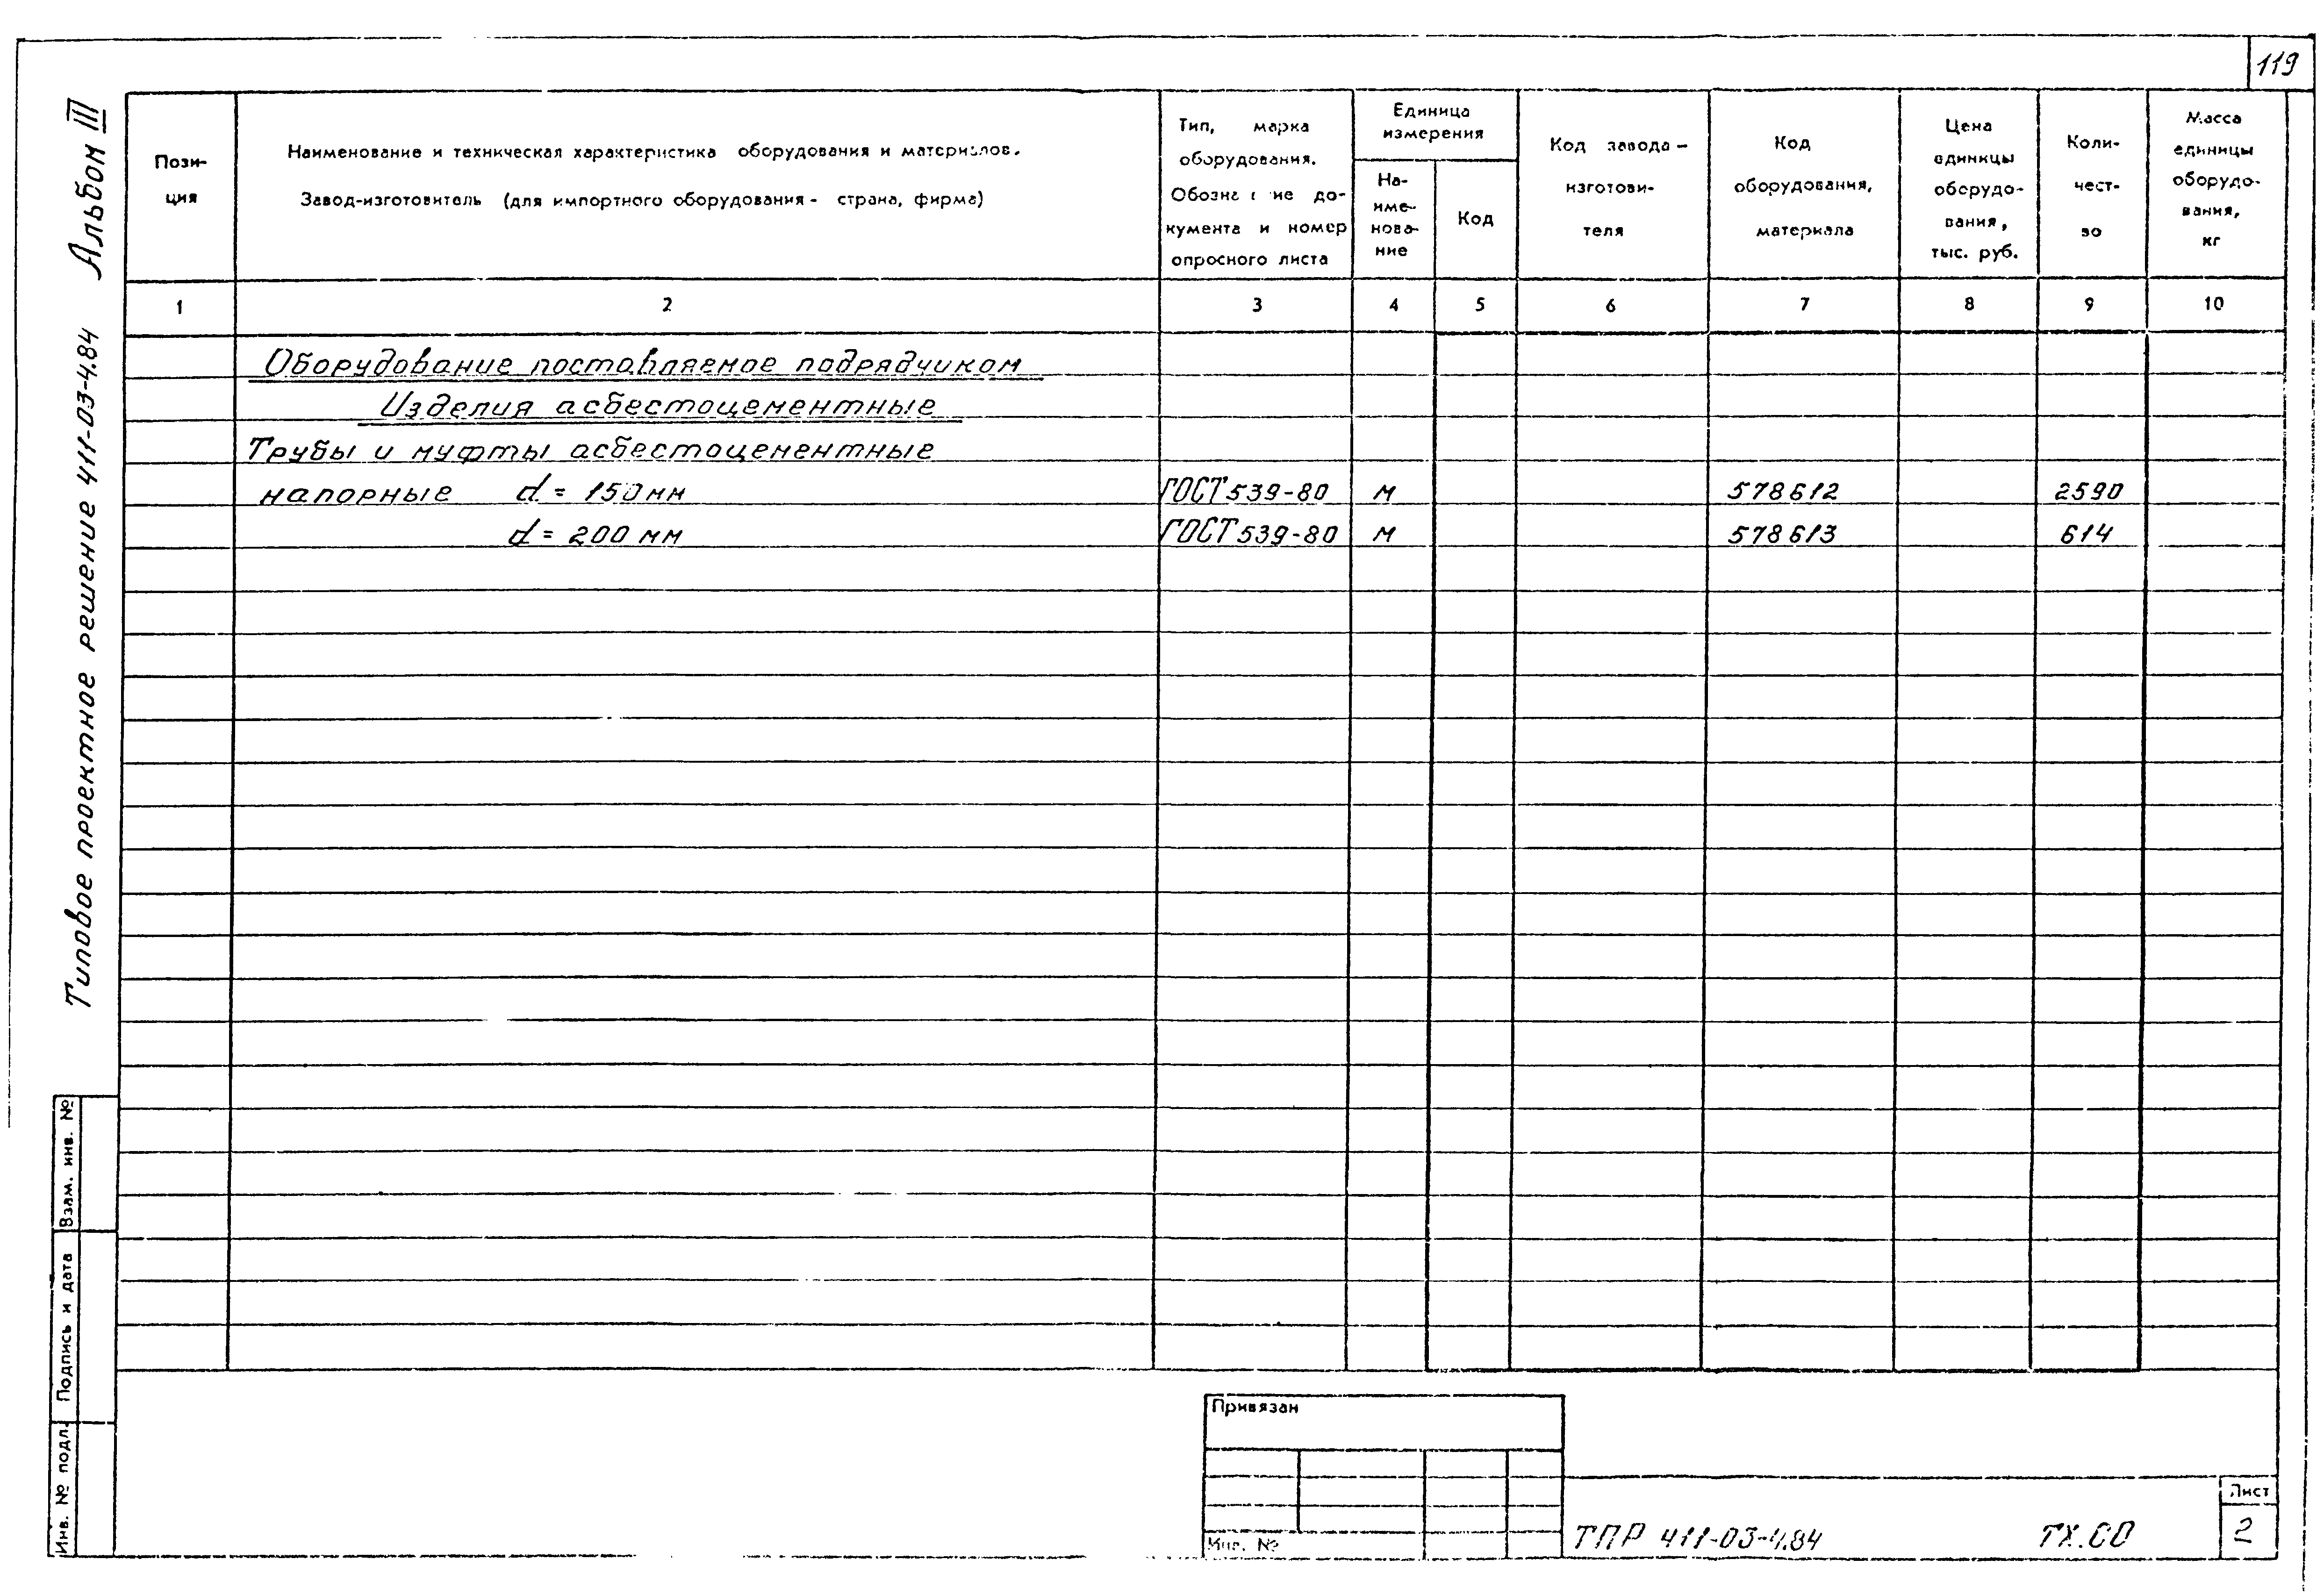 119
Альбом III
Типовое проектное решение 411-03-4.84
Пози-
ция
Наименование и техническая характеристика оборудования и материалов.
Завод-изготовитель (для импортного оборудования - страна, фирма)
Тип, марка
оборудования.
Обозначение до-
кумента и номер
опросного листа
Единица
измерения
На-
име-
нова-
ние
Код
Код завода -
изготови-
теля
Код
оборудования,
материала
Цена
единицы
оборудо-
вания,
тыс. руб.
Коли-
чест-
во
Масса
единицы
оборудо-
вания,
кг
1 2 3 4 5 6 7 8 9 10
Оборудование поставляемое подрядчиком
Изделия асбестоцементные
Трубы и муфты асбестоцементные
напорные d = 150 мм ГОСТ 539-80 м 578612 2590
d = 200 мм ГОСТ 539-80 м 578613 614
Взам. инв. №
Подпись и дата
Инв. № подл.
Привязан
Инв. №
ТПР 411-03-4.84 ТХ.СО
Лист
2